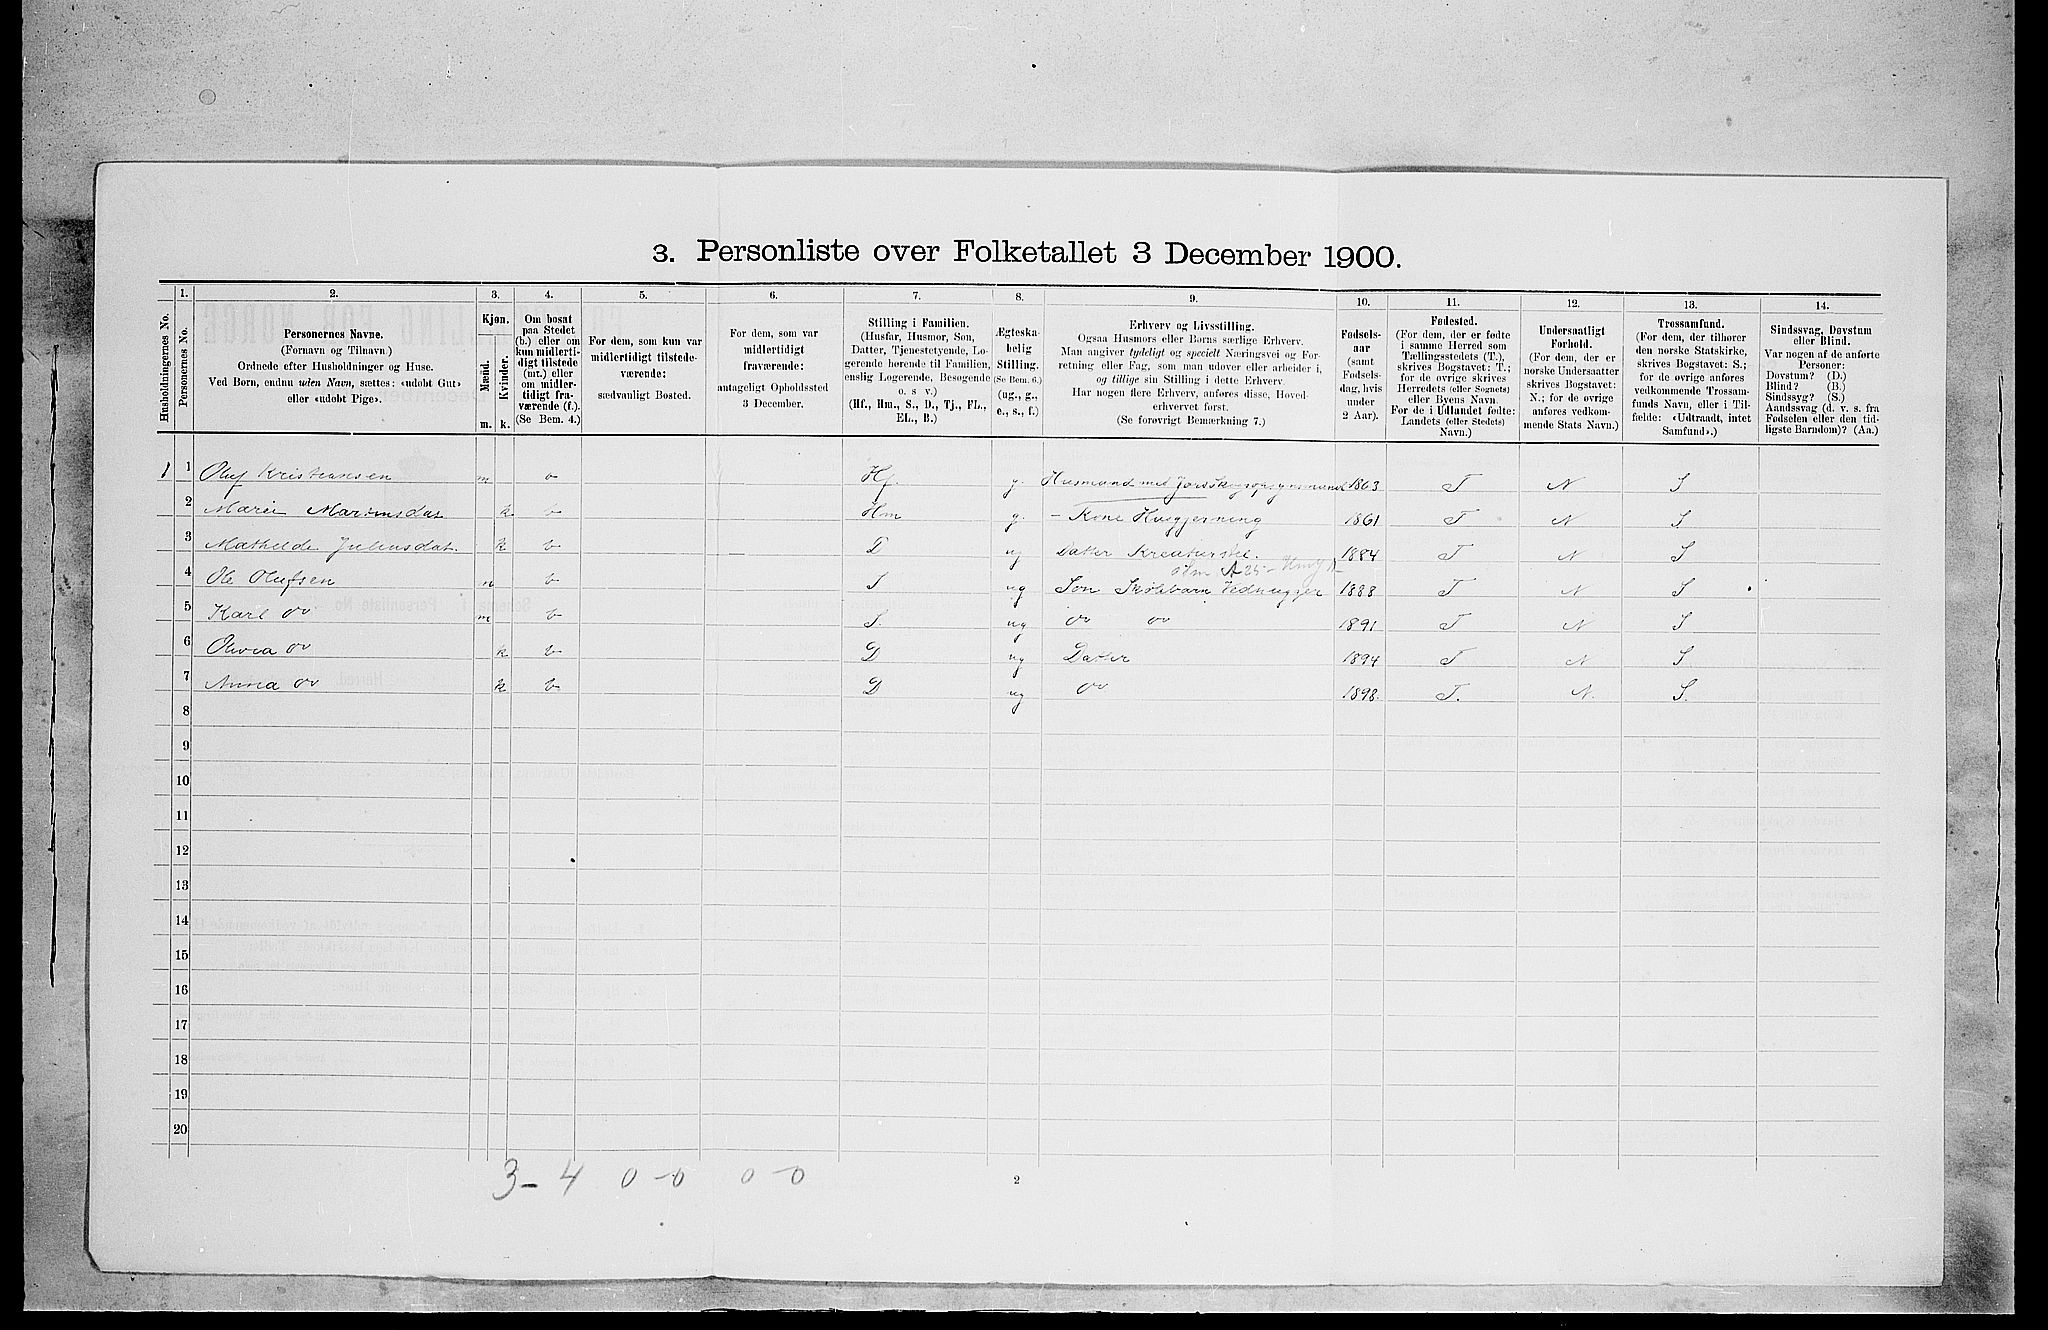 3. Personliste over Folketallet 3 December 1900.
Husholdningernes No.
1.
Personernes No.
2.
Personernes Navne.
(Fornavn og Tilnavn.)
Ordnede efter Husholdninger og Huse.
Ved Børn, endnu uden Navn, sættes: «udøbt Gut»
eller «udøbt Pige».
3.
Kjøn.
Mænd.
Kvinder.
m. k.
4.
Om bosat
paa Stedet
(b.) eller om
kun midlerti-
digt tilstede
(mt.) eller
om midler-
tidigt fra-
værende (f.).
(Se Bem. 4.)
5.
For dem, som kun var
midlertidigt tilstede-
værende:
sædvanligt Bosted.
6.
For dem, som var
midlertidigt
fraværende:
antageligt Opholdssted
3 December.
7.
Stilling i Familien.
(Husfar, Husmor, Søn,
Datter, Tjenestetyende, Lo-
gerende hørende til Familien,
enslig Logerende, Besøgende
o. s v.)
(Hf., Hm., S., D., Tj., FL.,
EL., B.)
8.
Ægteska-
belig
Stilling.
(Se Bem. 6.)
(ug., g.,
e., s., f.)
9.
Erhverv og Livsstilling.
Ogsaa Husmors eller Børns særlige Erhverv.
Man angiver tydeligt og specielt Næringsvei og For-
retning eller Fag, som man udøver eller arbeider i,
og tillige sin Stilling i dette Erhverv.
Har nogen flere Erhverv, anføres disse, Hoved-
erhvervet først.
(Se forøvrigt Bemærkning 7.)
10.
Fødsels-
aar
(samt
Fødsels-
dag, hvis
under
2 Aar).
11.
Fødested.
(For dem, der er fødte
i samme Herred som
Tællingsstedets (T.),
skrives Bogstavet: T.;
for de øvrige skrives
Herredets (eller Sognets)
eller Byens Navn.
For de i Udlandet fødte:
Landets (eller Stedets)
Navn.)
12.
Undersaatligt
Forhold.
(For dem, der er
norske Undersaatter
skrives Bogstavet:
N.; for de øvrige
anføres vedkom-
mende Stats Navn.)
13.
Trossamfund.
(For dem, der tilhører
den norske Statskirke,
skrives Bogstavet: S.;
for de øvrige anføres
vedkommende Trossam-
funds Navn, eller i Til-
fælde: «Udtraadt, intet
Samfund».)
14.
Sindssvag, Døvstum
eller Blind.
Var nogen af de anførte
Personer:
Døvstum? (D.)
Blind? (B.)
Sindssyg? (S.)
Aandssvag (d. v. s. fra
Fødselen eller den tid-
ligste Barndom)? (Aa.)
1 1 Oluf Kristiansen m b Hf. g. Husmand med Jord Skogopsynsmand 1863 T N S
2 Marie Martinsdat k b Hm g. - Kone Husgjerning 1861 T N S
3 Mathilde Juliusdat. k b D ug Datter Kreaturstel. 1884 T N S
4 Ole Olufsen m b S ug Søn Skolebarn Vedhugger 1888 T N S
5 Karl do m b S. ug do do 1891 T N S
6 Olivia do k b D ug Datter 1894 T N S
7 Anna do k b D ug do 1898. T. N. S.
8
9
10
11
12
13
14
15
16
17
18
19
20
3-4 0-0 0-0
2